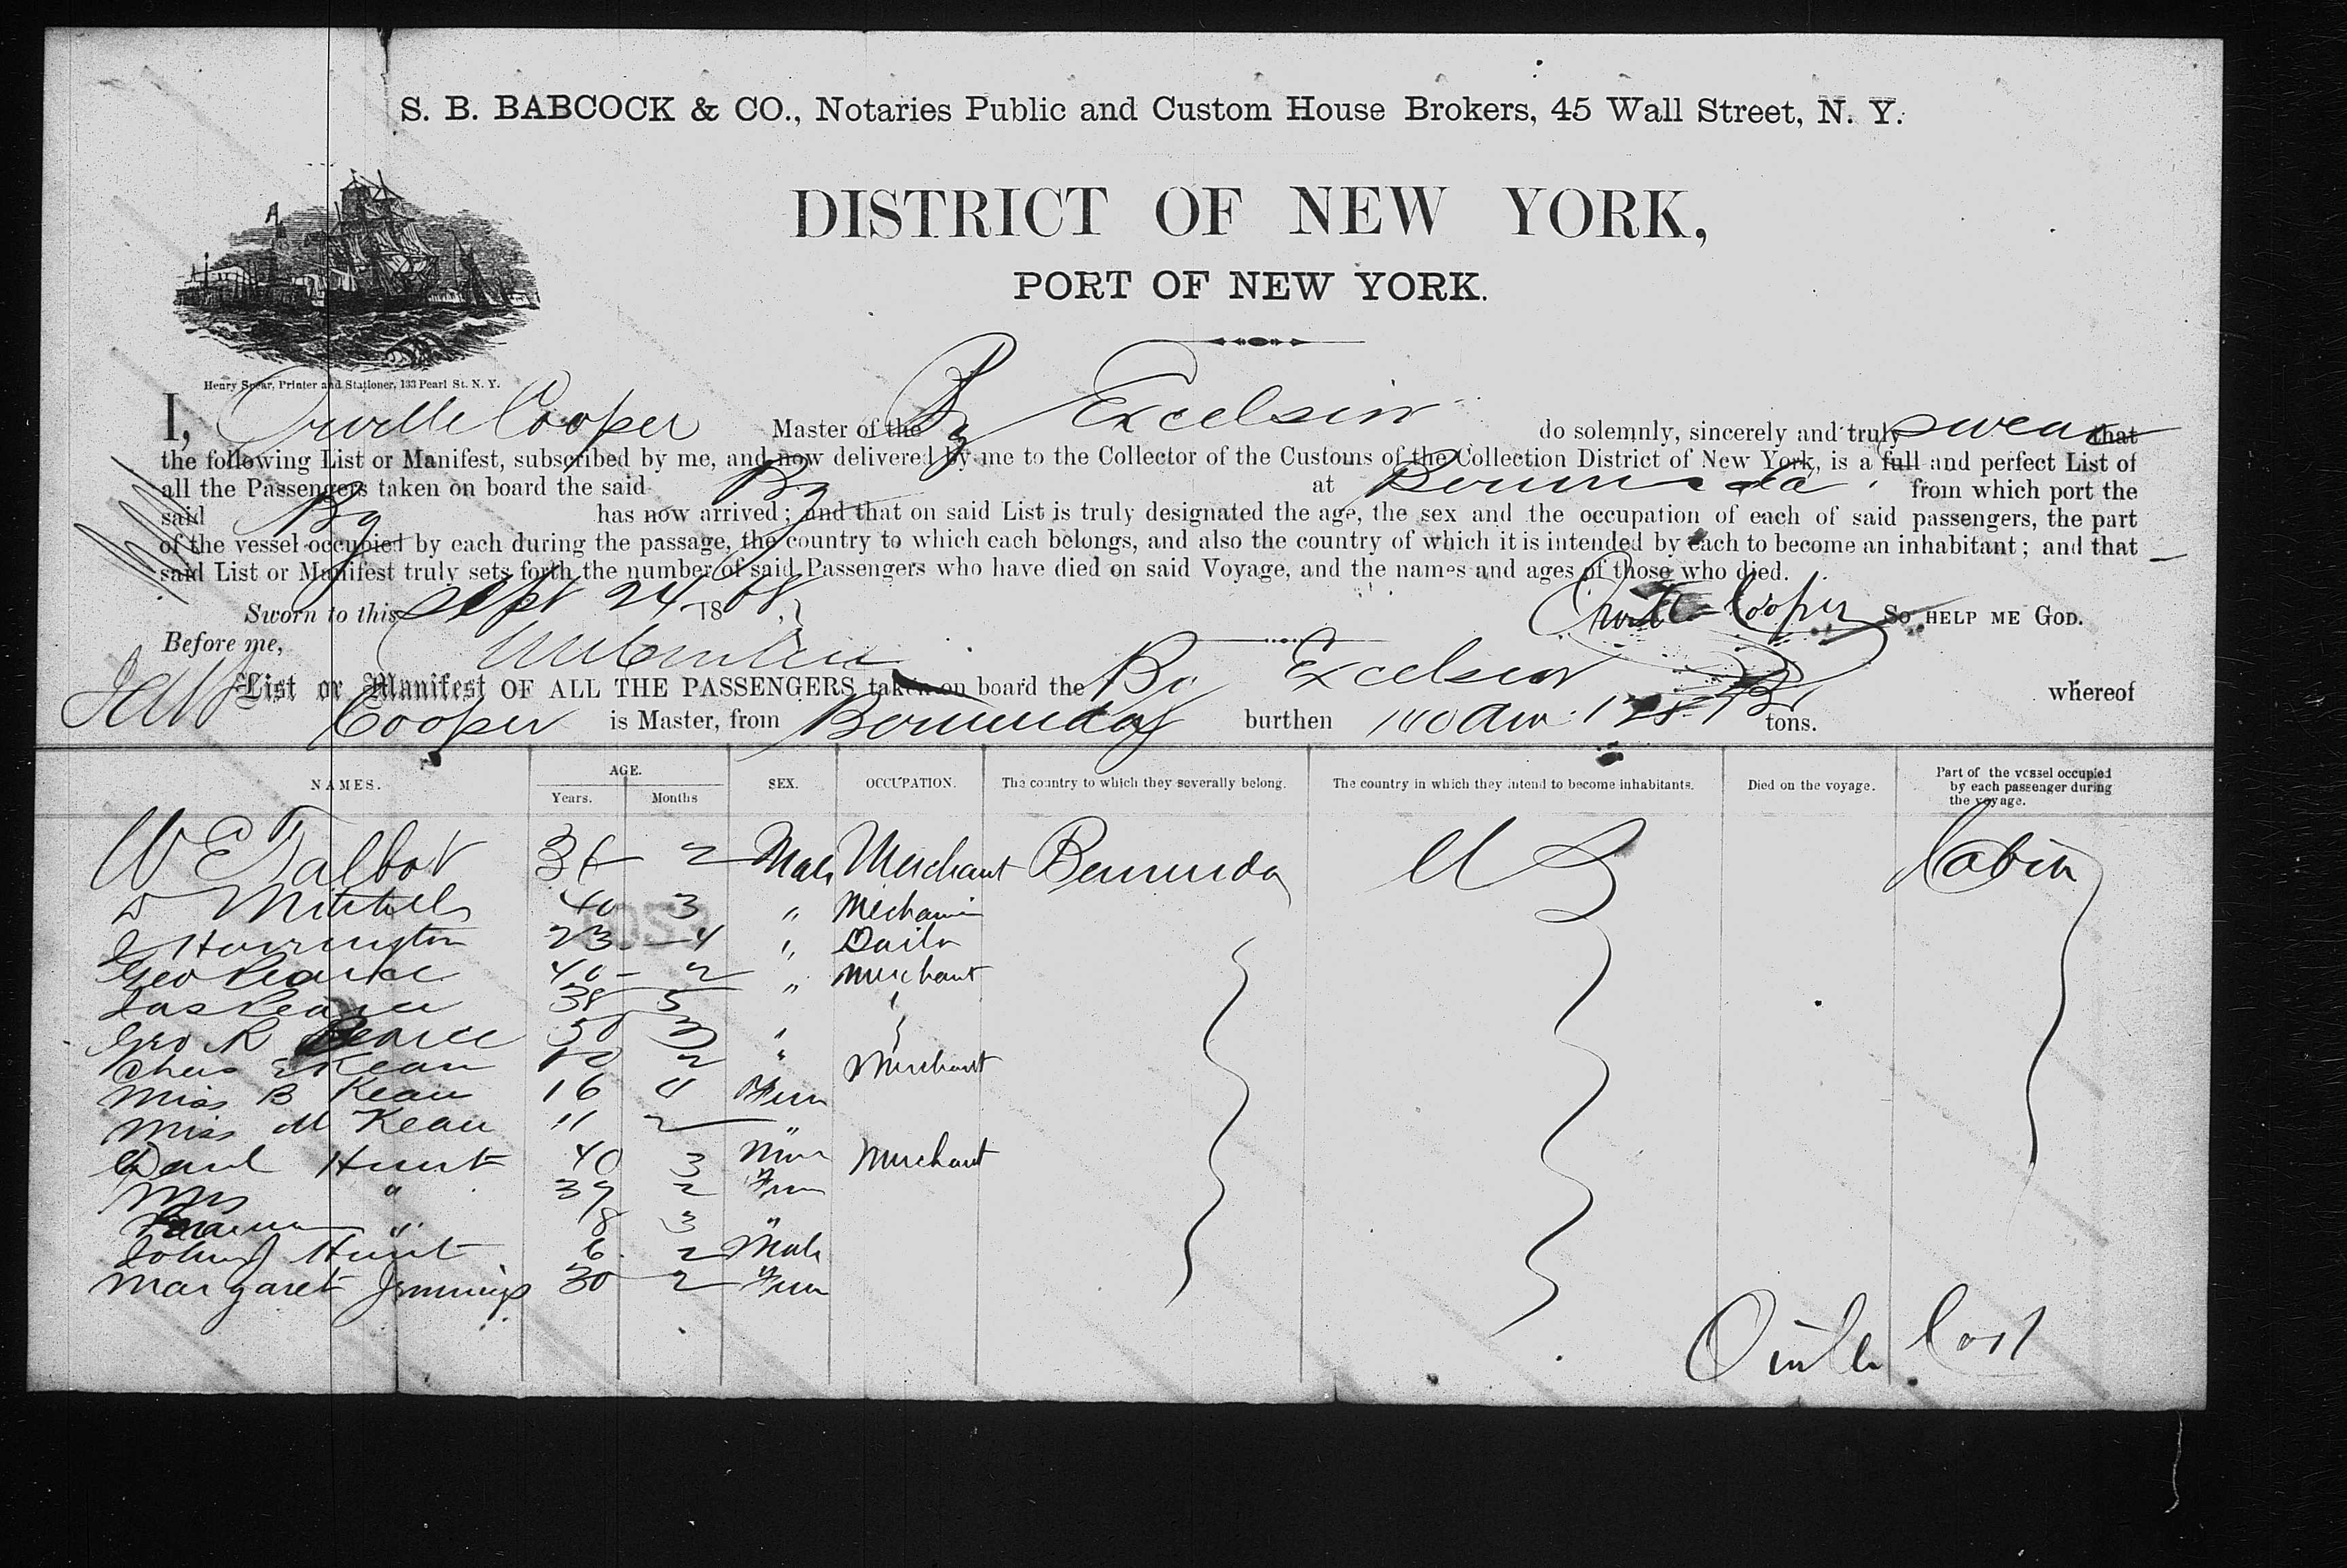 S. B. BABCOCK & CO., Notaries Public and Custom House Brokers, 45 Wall Street, N. Y.
DISTRICT OF NEW YORK,
PORT OF NEW YORK.
Henry Spear, Printer and Stationer, 133 Pearl St. N. Y.
I, Orville Cooper Master of the Bg Excelsior do solemnly, sincerely and truly swear that
the following List or Manifest, subscribed by me, and now delivered by me to the Collector of the Customs of the Collection District of New York, is a full and perfect List of
all the Passengers taken on board the said Bg at Bermuda from which port the
said Bg has now arrived; and that on said List is truly designated the age, the sex and the occupation of each of said passengers, the part
of the vessel occupied by each during the passage, the country to which each belongs, and also the country of which it is intended by each to become an inhabitant; and that
said List or Manifest truly sets forth the number of said Passengers who have died on said Voyage, and the names and ages of those who died.
Sworn to this Sept 24 1868 Orville Cooper SO HELP ME GOD.
Before me,
List or Manifest OF ALL THE PASSENGERS taken on board the Bg Excelsior whereof
Cooper is Master, from Bermuda burthen tons.
NAMES. AGE. Years. Months SEX. OCCUPATION. The country to which they severally belong. The country in which they intend to become inhabitants. Died on the voyage. Part of the vessel occupied by each passenger during the voyage.
W E Talbot 36 2 Male Merchant Bermuda U S Cabin
Mitchell 40 3 " Mechanic
J Harrington 23 4 "
Geo Pearce 40 2 " Merchant
Jas Pearce 38 5
Geo R Pearce 50 3 "
Chas E Kean 2 " Merchant
Miss B Kean 16 Fem
Miss M Kean 11 2 "
Hunt 40 3 Merchant
Mrs " 39 2 Fem
" 8 3 "
John J Hunt 6 2 Male
Margaret Jennings 30 2 Fem